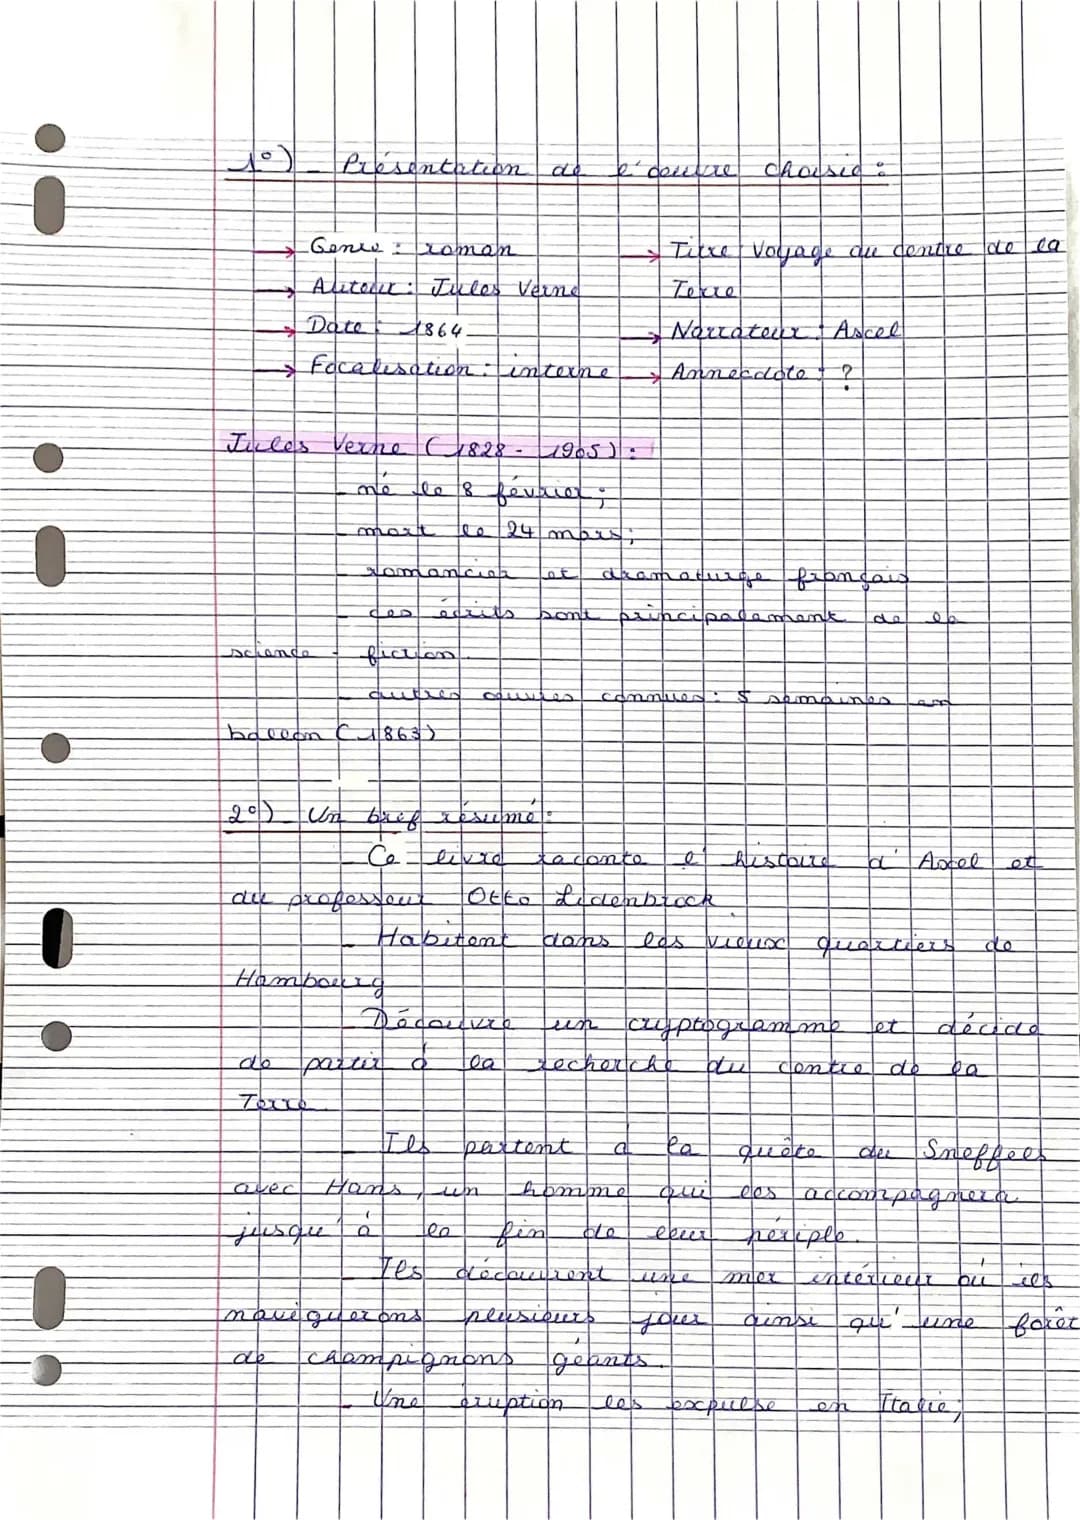 1°) - Présentation de l'oeuvre choisie :
→ Genre : roman
→ Auteur : Jules Verne
→ Date : 1864
→ Focalisation : interne
→ Titre Voyage au centre de la
Terre
→ Narrateur : Axel
→ Annecdote : ?
Jules Verne (1828 - 1905) :
- né le 8 février ;
- mort le 24 mars ;
- romancier et dramaturge français
- ces écrits sont principalement de la
science - fiction.
- autres œuvres connues : 5 semaines en
ballon (1863)
2°) - Un bref résumé :
- Ce livre raconte l'histoire d'Axel et
du professeur Otto Lidenbrock
- Habitent dans les vieux quartiers de
Hambourg
- Découvre un cryptogramme et décide
de partir à la recherche du centre de la
Terre
- Ils partent à la quête du Sneffels
avec Hans, un homme qui les accompagnera
jusqu'à la fin de leur périple.
- Ils découvrent une mer intérieur où ils
naviguerons plusieurs jour ainsi qu'une forêt
de champignons géants.
- Une éruption les expulse en Italie ;